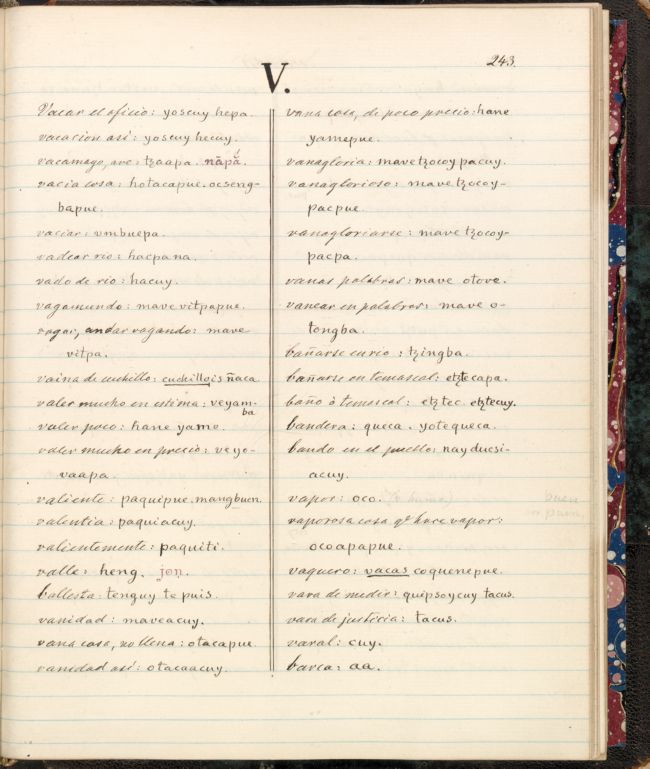 243.
V.
Vacar el oficio: yoscuy hepa.
vacacion asi: yoscuy hecuy.
vacamago, ave: tʒaapa. nāpā́
vacia cosa: hotacapue. ocseng-
bapue.
vaciar: vmbuepa.
vadear rio: hacpana.
vado de rio: hacuy.
vagamundo: mave vitpapue.
vagar, andar vagando: mave
vitpa.
vaina de cuchillo: cuchillois ñaca
valer mucho en estima: veyam-
ba
valer poco: hane yame.
valer mucho en precio: veyo-
vaapa.
valiente: paquipue. mangbuen.
valentia: paquiacuy.
valientemente: paquiti.
valle: heng. jon.
ballesta: tenguy te puis.
vanidad: maveacuy.
vana cosa, no llena: otacapue.
vanidad asi: otacaacuy.
vana cosa, de poco precio: hane
yamepue.
vanagloria: mavetʒocoy pacuy.
vanaglorioso: mave tʒocoy-
pacpue.
vanagloriarse: mave tʒocoy-
pacpa.
vanas palabras: mave otove.
vanear en palabras: mave o-
tongba.
bañarse en rio: tʒingba.
bañarse en temascal: etʒtecapa.
baño ò temescal: etʒtec. etʒtecuy.
bandera: queca. yotequeca.
bando en el pueblo: nayducsi-
acuy.
vapor: oco.
vaporosa cosa qe hace vapor:
ocoapapue.
vaquero: vacas coquenepue.
vara de medir: quipsoycuy tacus.
vara de justicia: tacus.
varal: cuy.
barca: aa.